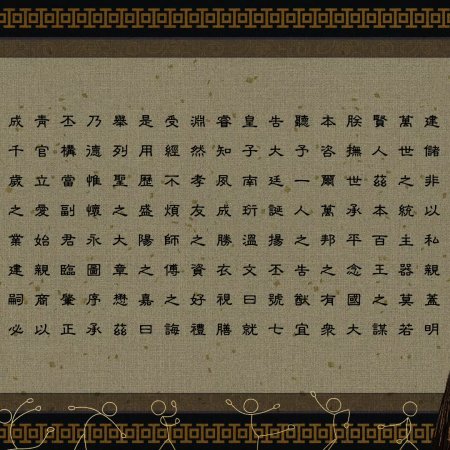 建儲非以私親蓋明
萬世之統主器莫若
賢人茲本百王之謀
朕撫世承平念國大
本咨爾萬邦之有衆
聽予一人之告猷宜
告大廷誕揚丕號七
皇子南珩溫文曰就
睿知夙成勝衣視膳
淵然孝友之資好禮
受經不煩師傅之誨
是用歷盛陽之嘉曰
舉列聖之大章懋茲
乃德惟懷永圖序承
丕構當副君臨肇正
青官立愛始親商以
成千歲之業建嗣必